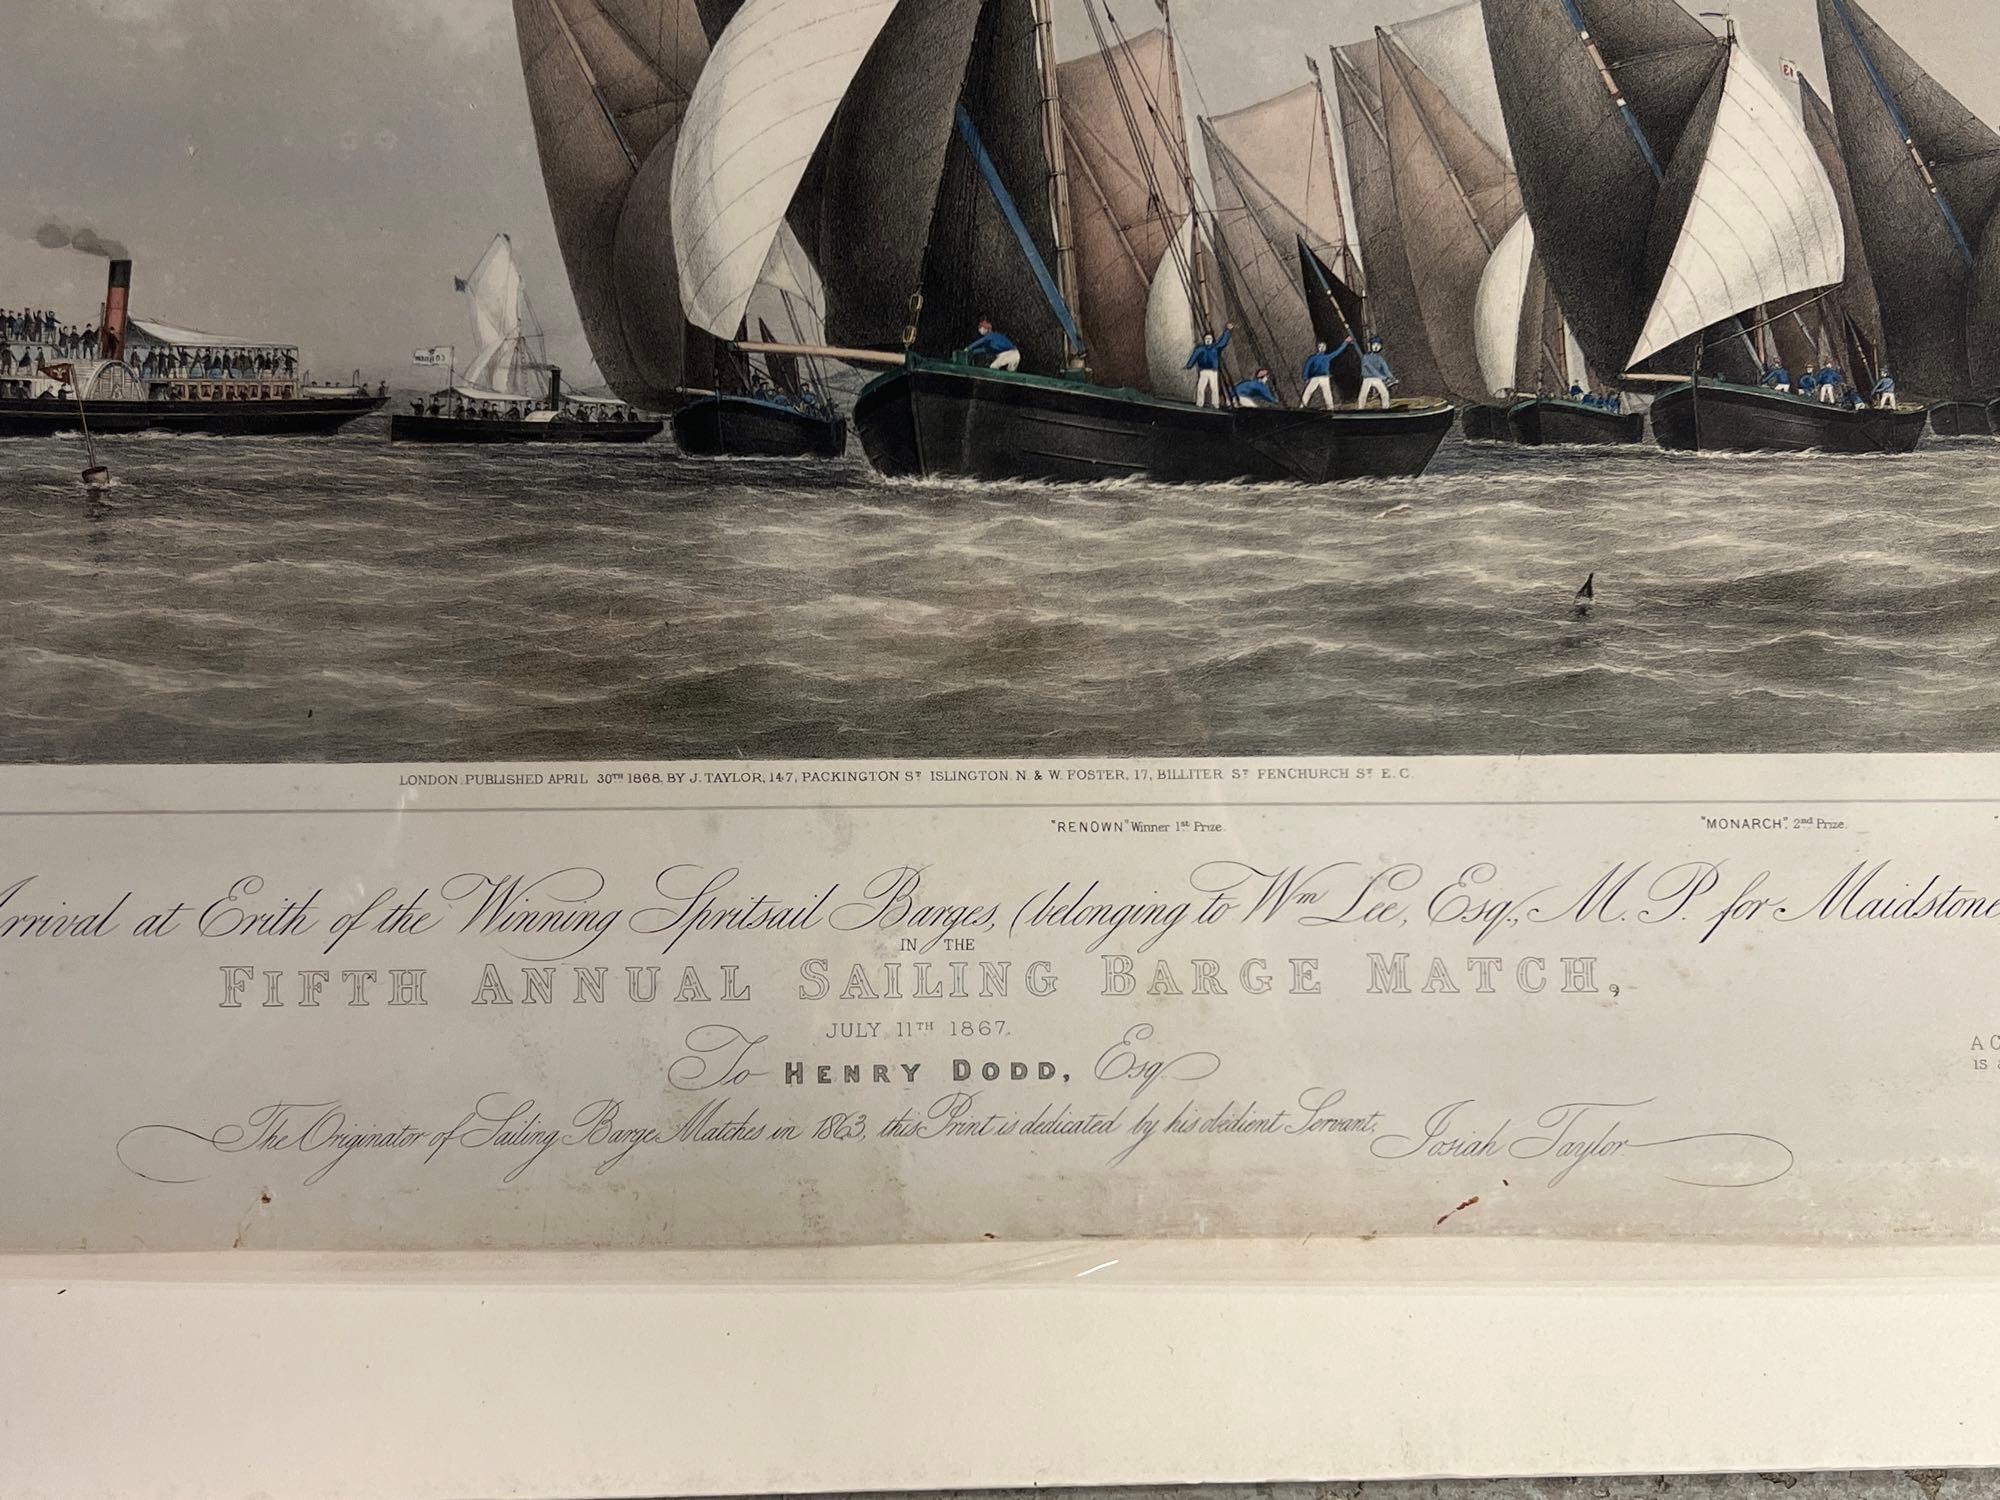 13
LONDON. PUBLISHED APRIL 30TH 1868, BY J. TAYLOR, 147, PACKINGTON ST ISLINGTON. N. & W. FOSTER, 17, BILLITER ST FENCHURCH ST E.C.
"RENOWN" Winner 1st Prize. "MONARCH". 2nd Prize.
Arrival at Erith of the Winning Spritsail Barges, (belonging to Wm Lee, Esq., M.P. for Maidstone
IN THE
FIFTH ANNUAL SAILING BARGE MATCH,
JULY 11TH 1867.
To HENRY DODD, Esq.
The Originator of Sailing Barge Matches in 1863, this Print is dedicated by his obedient Servant, Josiah Taylor
IS